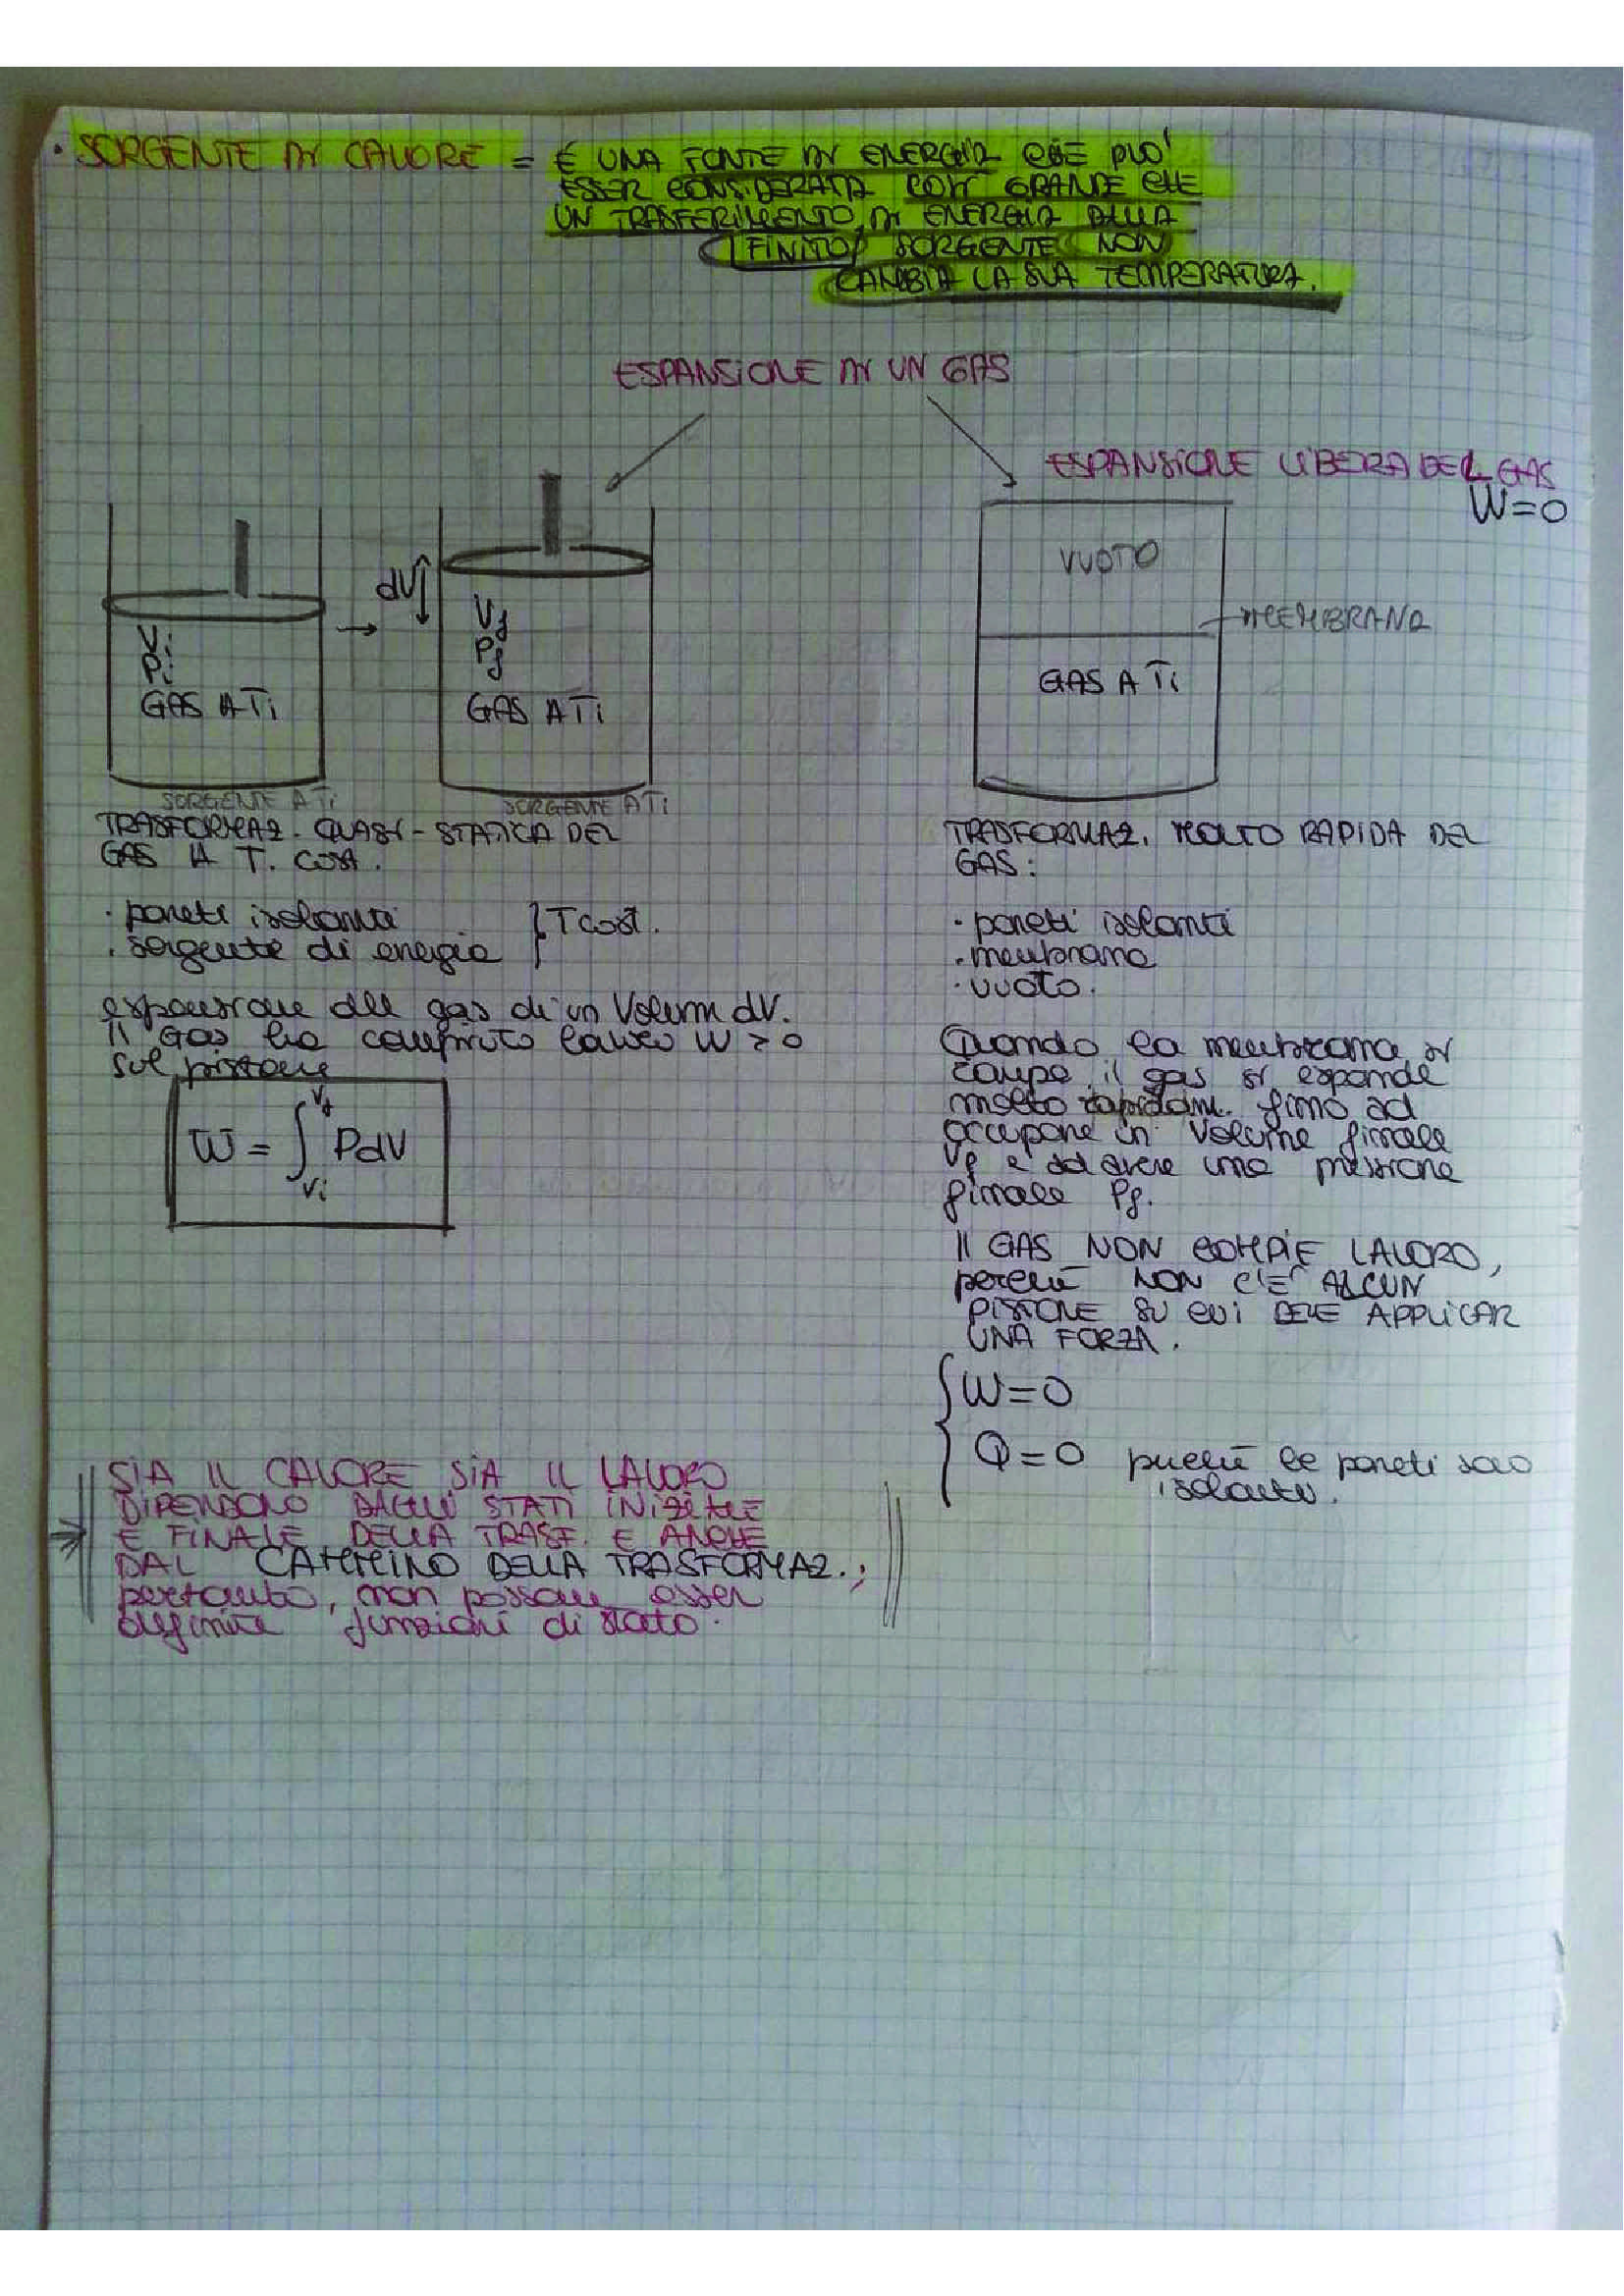 · SORGENTE DI CALORE = È UNA FONTE DI ENERGIA CHE PUO'
ESSER CONSIDERATA COSI' GRANDE CHE
UN TRASFERIMENTO DI ENERGIA ALLA
(FINITO) SORGENTE NON
CAMBIA LA SUA TEMPERATURA.
ESPANSIONE DI UN GAS
ESPANSIONE LIBERA DEL GAS
W=0
dV
Vi
Pi
GAS A Ti
SORGENTE A Ti
Vf
Pf
GAS A Ti
SORGENTE A Ti
VUOTO
MEMBRANA
GAS A Ti
TRASFORMAZ. QUASI-STATICA DEL
GAS A T. COST.
· pareti isolanti
· sorgente di energia
T cost.
espansione del gas di un Volume dV.
Il Gas ha compiuto lavoro W > 0
sul pistone
W = ∫ Vi Vf PdV
TRASFORMAZ. MOLTO RAPIDA DEL
GAS:
· pareti isolanti
· membrana
· vuoto.
Quando la membrana si
rompe il gas si espande
molto rapidam. fino ad
occupare un Volume finale
Vf e ad avere una pressione
finale Pf.
Il GAS NON COMPIE LAVORO,
perché NON C'E' ALCUN
PISTONE SU CUI DEVE APPLICAR
UNA FORZA.
W=0
Q=0 perché le pareti sono
isolanti.
SIA IL CALORE SIA IL LAVORO
DIPENDONO DAGLI STATI INIZIALE
E FINALE DELLA TRASF. E ANCHE
DAL CAMMINO DELLA TRASFORMAZ.;
pertanto, non possono esser
definite funzioni di stato.